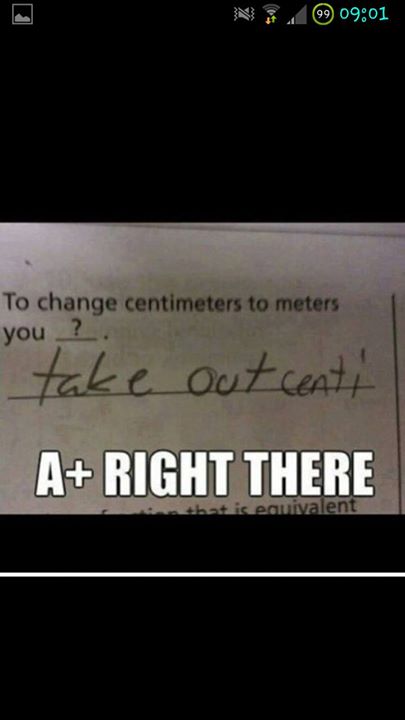 99 09:01
To change centimeters to meters
you ? .
take out centi
A+ RIGHT THERE
that is equivalent